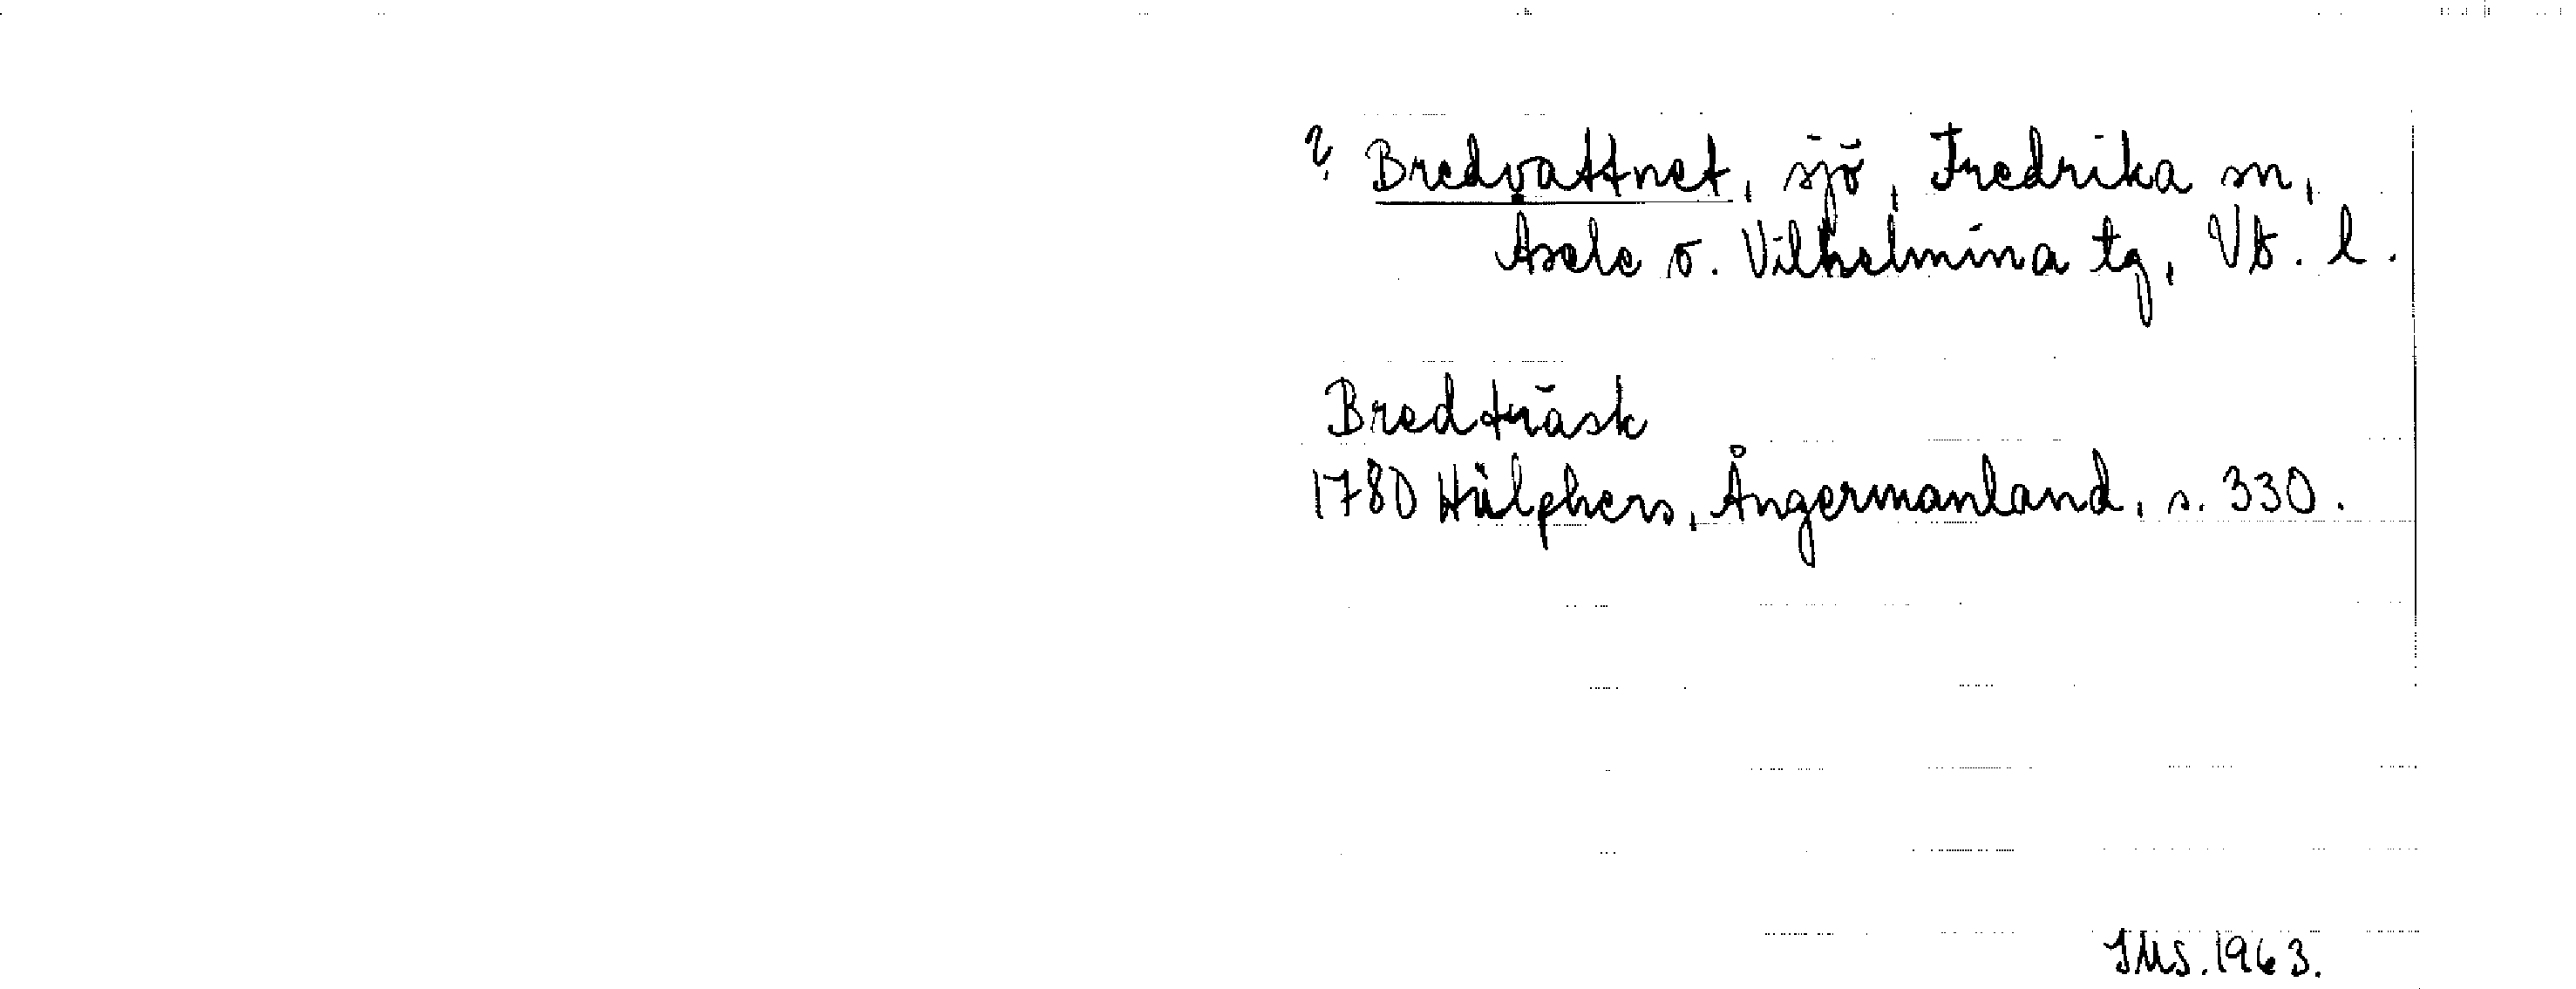 ? Bredvattnet, sjö, Fredrika sn,
Asele o. Vilhelmina tg, Vb. l.
Bredträsk
1780 Hülphers, Ångermanland, s. 330.
IMS. 1963.